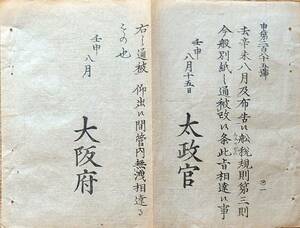 申第二百六十五号
去辛未八月及布告候舩税規則第三則
今般別紙之通被改候条此旨相達候事
壬申
八月十五日
太政官
右之通被 仰出候間管内無洩相達る
もの也
壬申
八月
大阪府